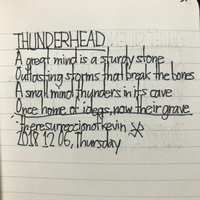 THUNDERHEAD
A great mind is a sturdy stone
Outlasting storms that break the bones
A small mind thunders in its cave
Once home of ideas, now their grave
theresurrectionofkevin
2018 12 06, Thursday